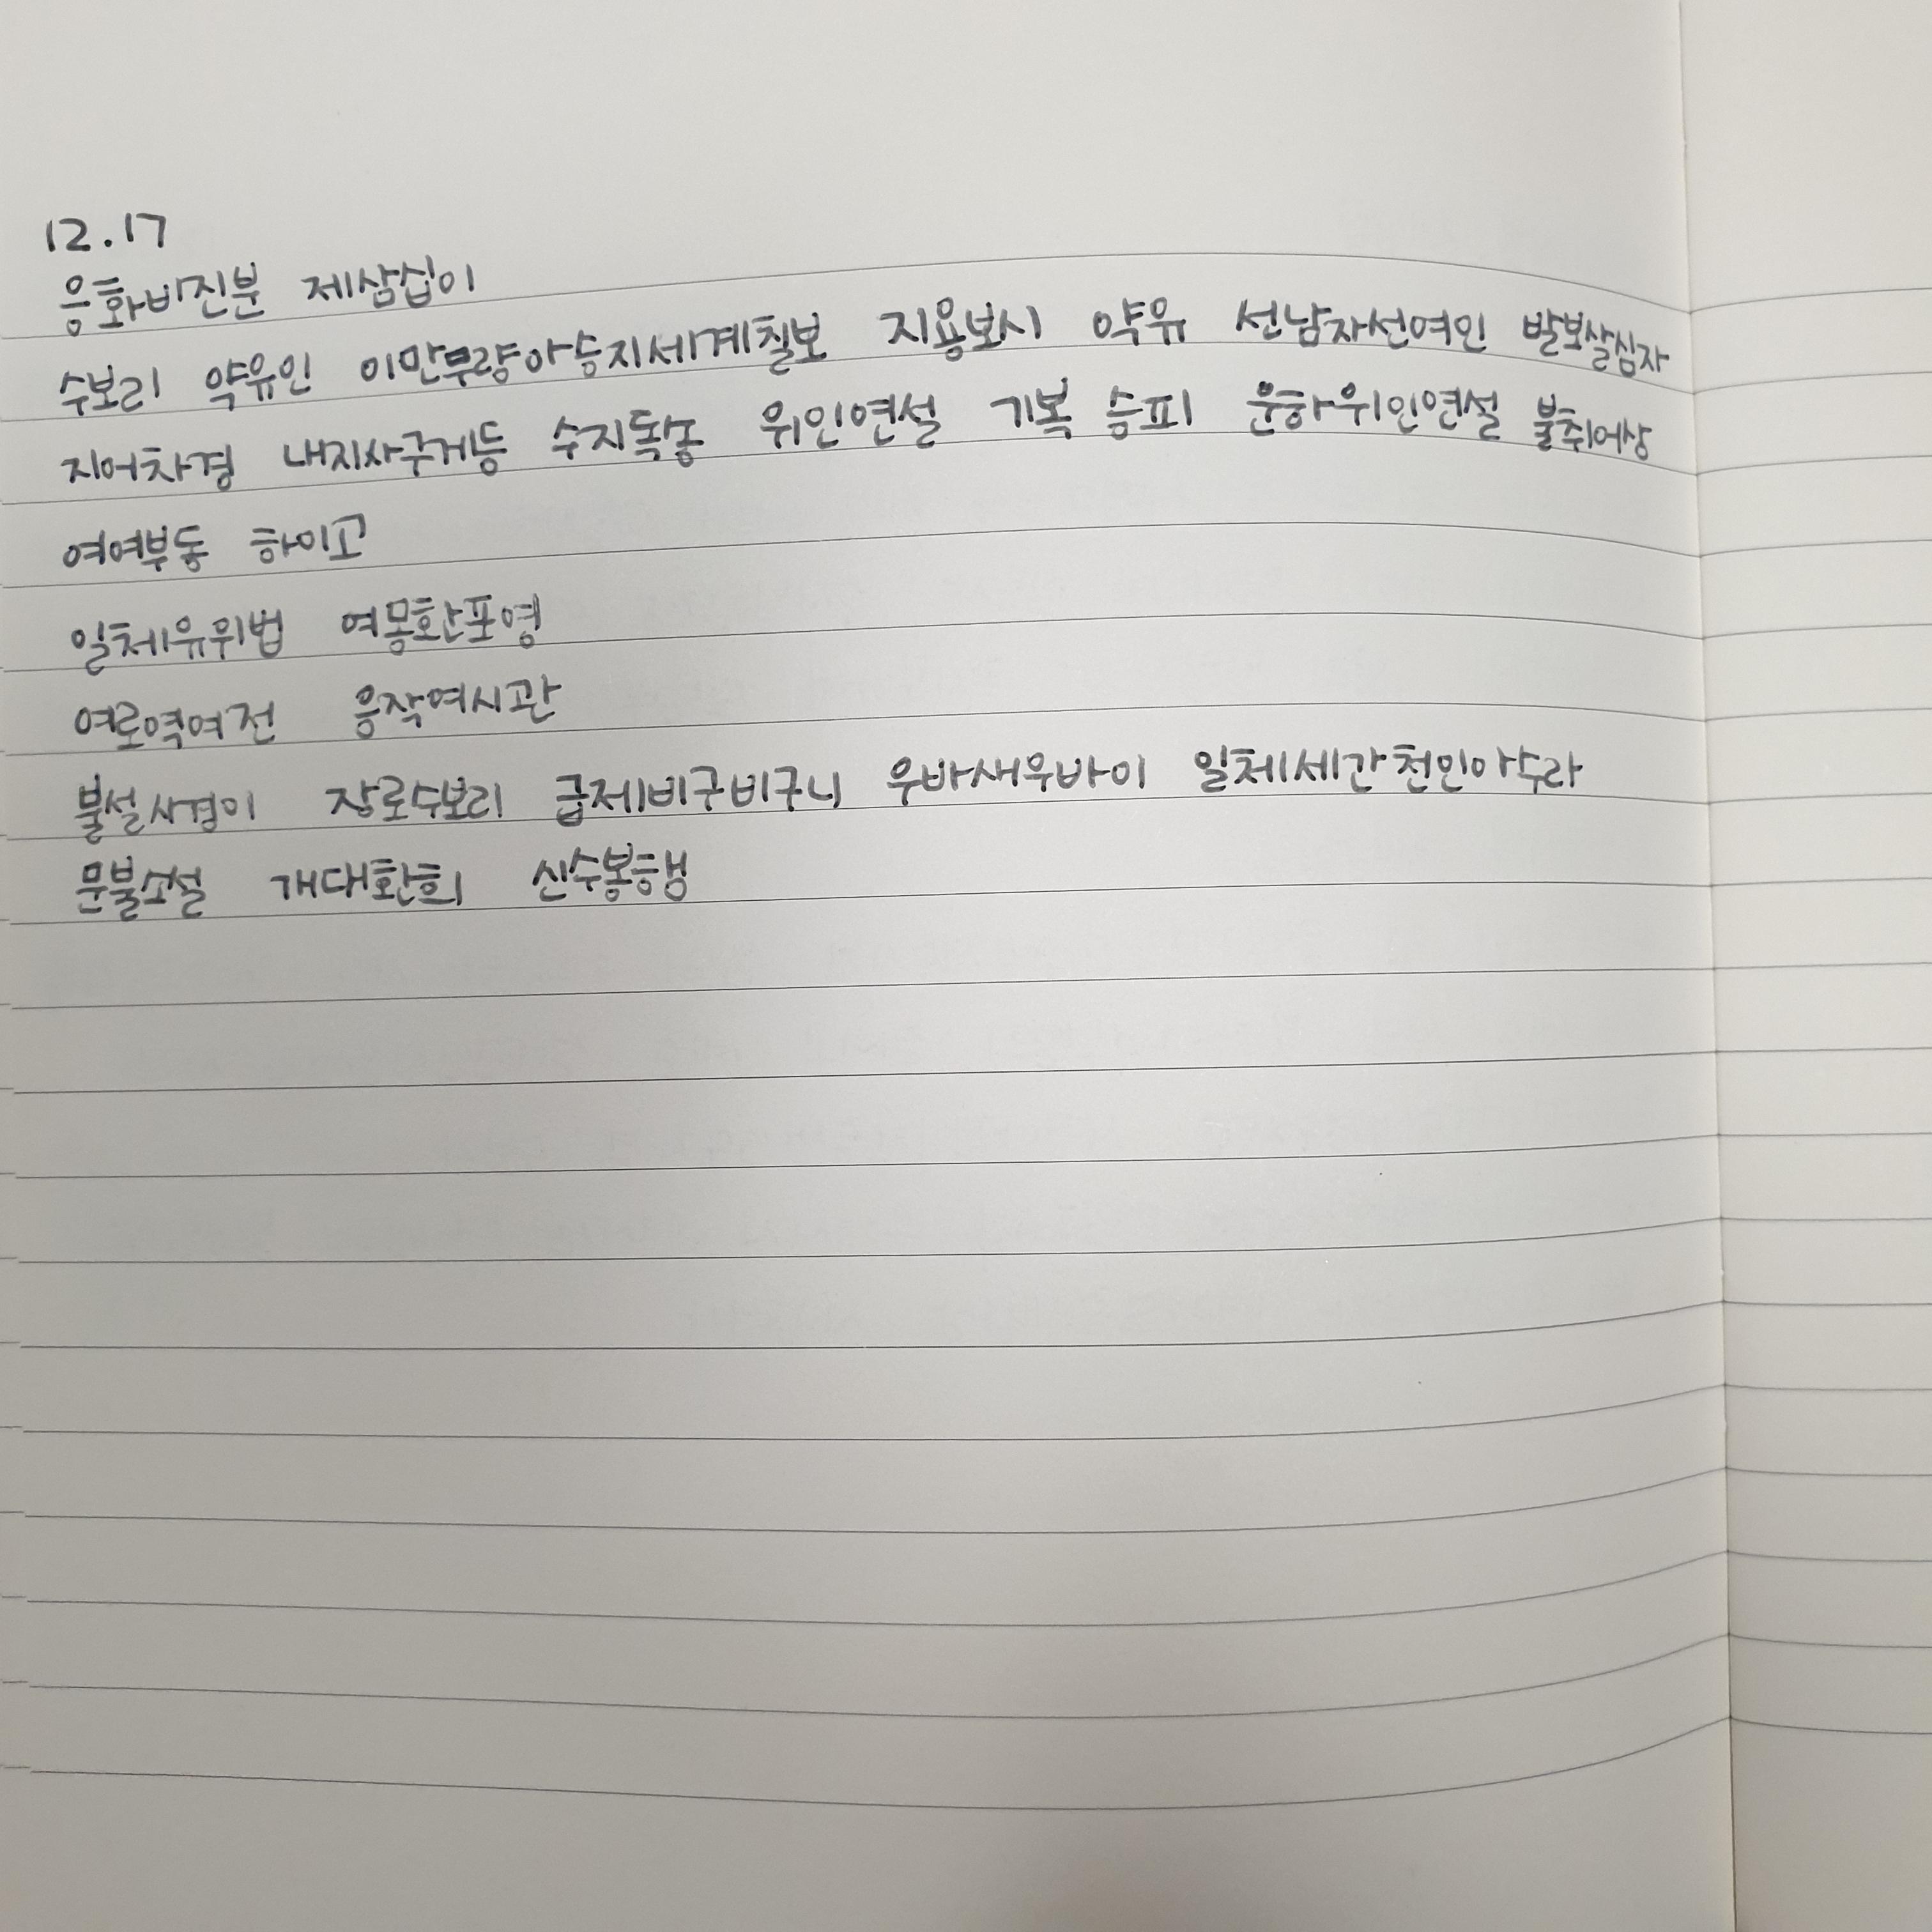 12.17
응화비진분 제삼십이
수보리 약유인 이만무량아승지세계칠보 지용보시 약유 선남자선여인 발보살심자
지어차경 내지사구게등 수지독송 위인연설 기복 승피 운하위인연설 불취어상
여여부동 하이고
일체유위법 여몽환포영
여로역여전 응작여시관
불설시경이 장로수보리 급제비구비구니 우바새우바이 일체세간천인아수라
문불소설 개대환희 신수봉행